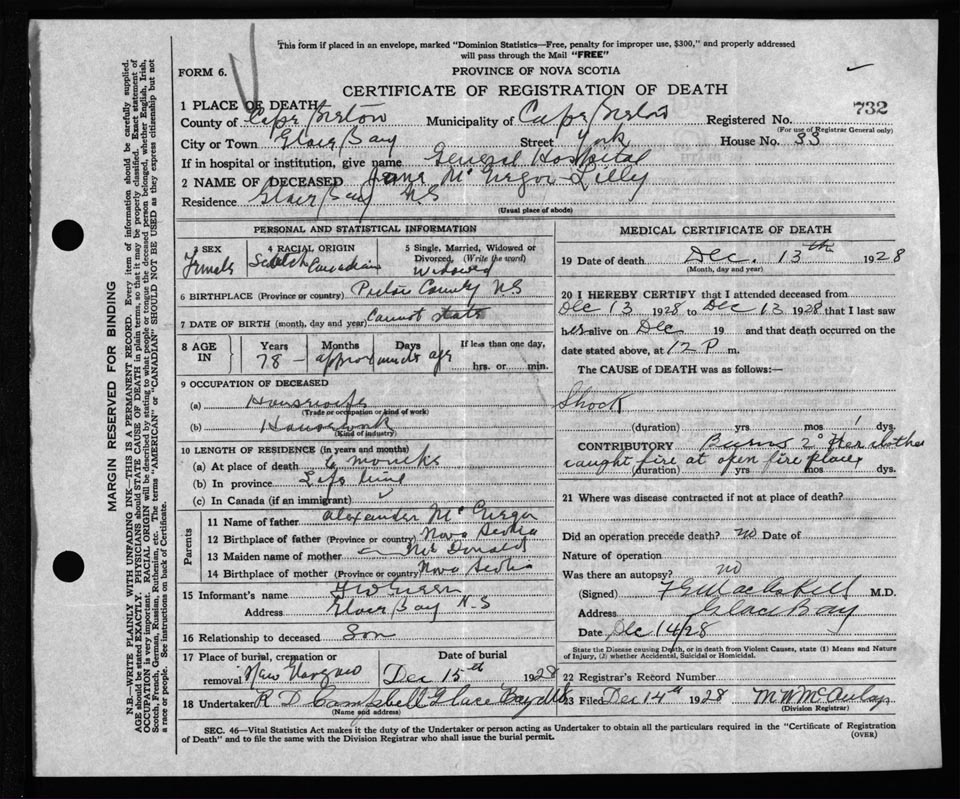 This form if placed in an envelope, marked "Dominion Statistics—Free, penalty for improper use, $300," and properly addressed
will pass through the Mail "FREE"
FORM 6.
PROVINCE OF NOVA SCOTIA
CERTIFICATE OF REGISTRATION OF DEATH
732
1 PLACE OF DEATH
County of Cape Breton Municipality of Cape Breton Registered No.
(For use of Registrar General only)
City or Town Glace Bay Street York House No. 33
If in hospital or institution, give name General Hospital
2 NAME OF DECEASED Jane McGregor Lilly
Residence Glace Bay NS
(Usual place of abode)
PERSONAL AND STATISTICAL INFORMATION
3 SEX Female
4 RACIAL ORIGIN Scotch Canadian
5 Single, Married, Widowed or Divorced, (Write the word) Widowed
6 BIRTHPLACE (Province or country) Pictou County NS
7 DATE OF BIRTH (month, day and year) Cannot state
8 AGE IN Years Months Days If less than one day,
78 – approx hrs. or min.
9 OCCUPATION OF DECEASED
(a) Housewife
(Trade or occupation or kind of work)
(b) Housework
(Kind of industry)
10 LENGTH OF RESIDENCE (in years and months)
(a) At place of death 6 months
(b) In province Life time
(c) In Canada (if an immigrant)
Parents
11 Name of father Alexander McGregor
12 Birthplace of father (Province or country) Nova Scotia
13 Maiden name of mother McDonald
14 Birthplace of mother (Province or country) Nova Scotia
15 Informant's name
Address Glace Bay N.S
16 Relationship to deceased Son
17 Place of burial, cremation or removal New Glasgow
Date of burial Dec 15th 1928
18 Undertaker R D Campbell Glace Bay NS
(Name and address)
MEDICAL CERTIFICATE OF DEATH
19 Date of death Dec. 13th 1928
(Month, day and year)
20 I HEREBY CERTIFY that I attended deceased from
Dec 13 1928 to Dec 13 1928 that I last saw
her alive on Dec 19 and that death occurred on the
date stated above, at 12 P m.
The CAUSE of DEATH was as follows:—
Shock
(duration) yrs. mos. 1 dys.
CONTRIBUTORY Burns 2° Her clothes
caught fire at open fire place
(duration) yrs. mos. dys.
21 Where was disease contracted if not at place of death?
Did an operation precede death? no Date of
Nature of operation
Was there an autopsy? no
(Signed) M.D.
Address Glace Bay
Date Dec 14/28
State the Disease causing Death, or in death from Violent Causes, state (1) Means and Nature
of Injury, (2) whether Accidental, Suicidal or Homicidal.
22 Registrar's Record Number
23 Filed Dec 14th 1928 M W McAulay
(Division Registrar)
SEC. 46—Vital Statistics Act makes it the duty of the Undertaker or person acting as Undertaker to obtain all the particulars required in the "Certificate of Registration
of Death" and to file the same with the Division Registrar who shall issue the burial permit.
(OVER)
MARGIN RESERVED FOR BINDING
N.B.—WRITE PLAINLY WITH UNFADING INK—THIS IS A PERMANENT RECORD. Every item of information should be carefully supplied.
AGE should be stated EXACTLY. PHYSICIANS should STATE CAUSE OF DEATH in plain terms, so that it may be properly classified. Exact statement of
OCCUPATION is very important. RACIAL ORIGIN will be described by stating to what people or tongue the deceased person belonged, whether English, Irish,
Scotch, French, German, Russian, Ruthenian, etc. The terms "AMERICAN" or "CANADIAN" SHOULD NOT BE USED as they express citizenship but not
a race or people. See instructions on back of Certificate.